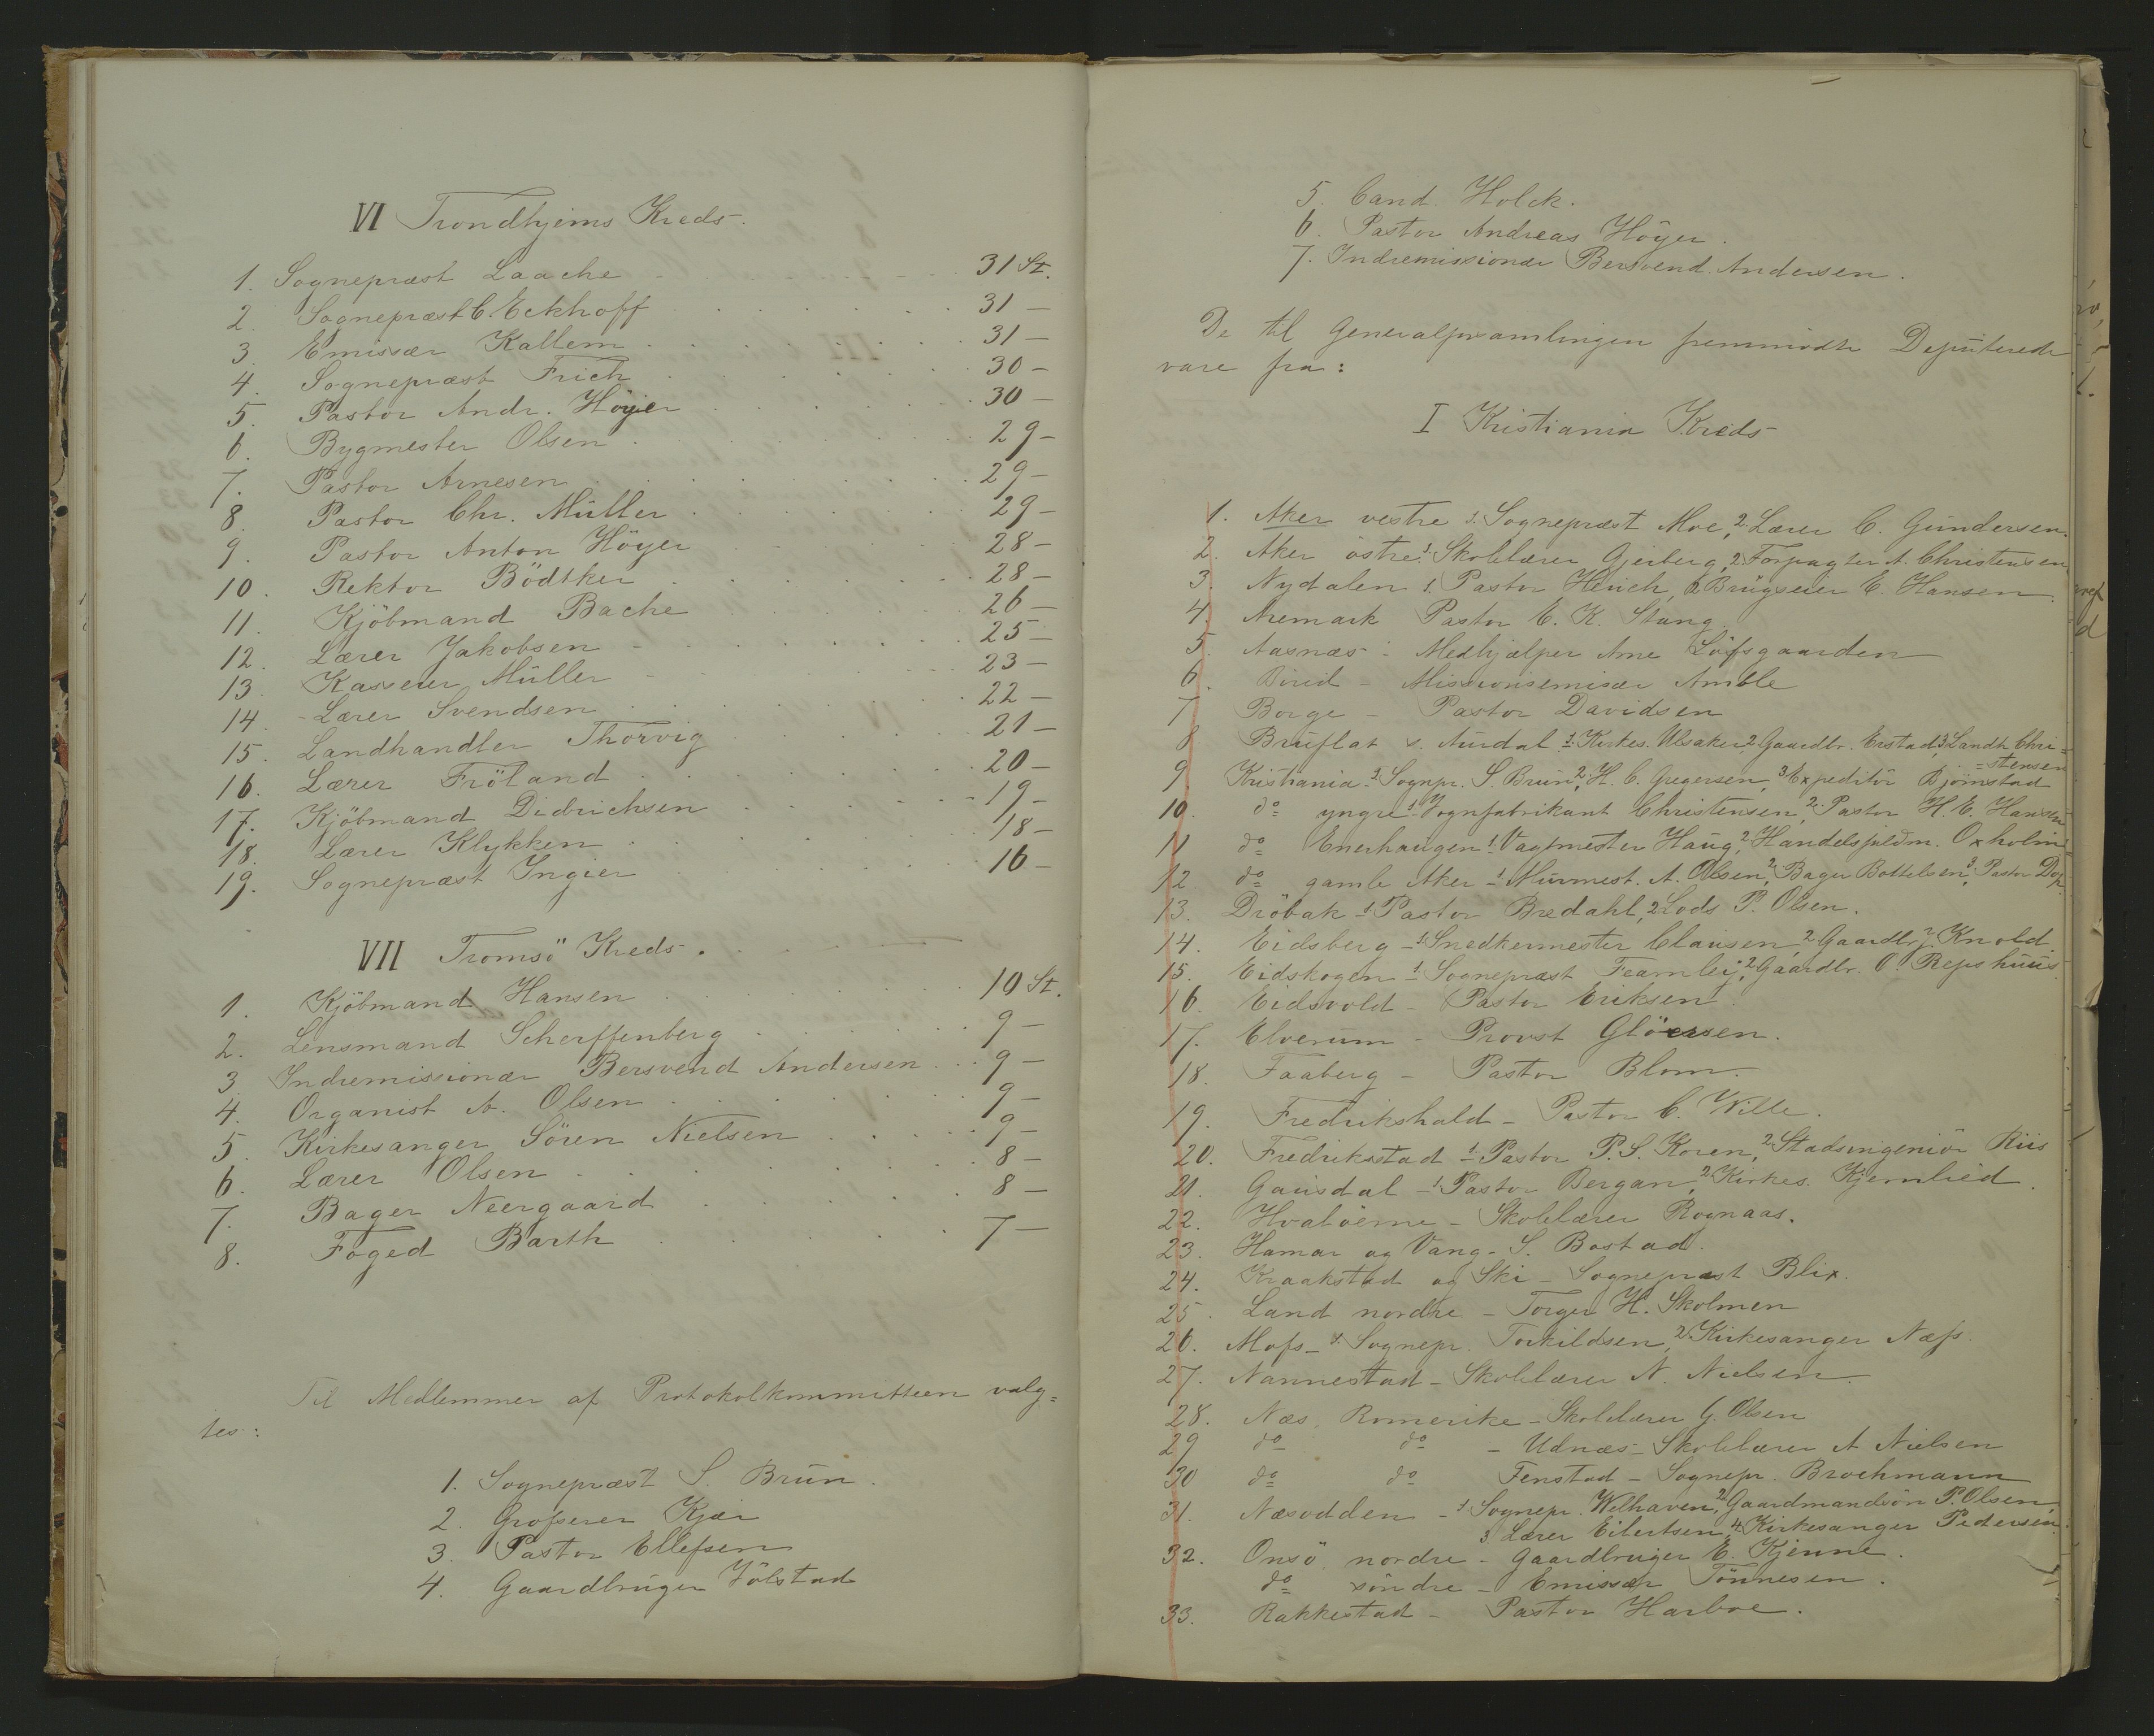 VI Trondhjems Kreds.
1. Sognepræst Laache 31 St.
2. Sognepræst C. Eckhoff 31 —
3. Emissær Kallem 31 —
4. Sognepræst Frich 30 —
5. Pastor Andr. Höyer 30 —
6. Bygmester Olsen 29 —
7. Pastor Arnesen 29 —
8. Pastor Chr. Müller 29 —
9. Pastor Anton Höyer 28 —
10. Rektor Bödtker 28 —
11. Kjöbmand Bache 26 —
12. Lærer Jakobsen 25 —
13. Kasserer Müller 23 —
14. Lærer Svendsen 22 —
15. Landhandler Thorvig 21 —
16. Lærer Fröland 20 —
17. Kjöbmand Didrichsen 19 —
18. Lærer Klykken 18 —
19. Sognepræst Ingier 16 —
VII Tromsö Kreds.
1. Kjöbmand Hansen 10 St.
2. Lensmand Scherffenberg 9 —
3. Indremissionær Bersvend Andersen 9 —
4. Organist A. Olsen 9 —
5. Kirkesanger Sören Nielsen 9 —
6. Lærer Olsen 8 —
7. Bager Neergaard 8 —
8. Foged Barth 7 —
Til Medlemmer af Protokolkommitteen valg=
tes:
1. Sognepræst S. Brun.
2. Grosserer Kjær
3. Pastor Ellefsen
4. Gaardbruger Jölstad
5. Cand. Holck.
6. Pastor Andreas Höyer.
7. Indremissionær Bersvend Andersen.
De til Generalforsamlingen fremmödte Deputerede
vare fra:
I Kristiania Kreds
1. Aker vestre 1. Sognepræst Moe, 2. Lærer C. Gundersen.
2. Aker östre 1. Skolelærer Gjerberg, 2. Forpagter A. Christensen
3. Nydalen 1. Pastor Heuch, 2. Brugseier E. Hansen.
4. Aremark Pastor E. K. Stang.
5. Aasnæs - Medhjælper Arne Löfsgaarden
6. Birid - Missionsemisær Amble
7 Borge - Pastor Davidsen
8 Bruflat s. Aurdal 1. Kirkes. Ulsaker 2. Gaardbr. Erstad, 3. Landh. Chri=
=stensen
9 Kristiania 1. Sognpr. S. Brun, 2. H. C. Gregersen, 3. Expeditör Björnstad
10. do yngre 1. Vognfabrikant Christensen, 2. Pastor H. E. Hansen
11 do Enerhaugen 1. Vagtmester Haug, 2. Handelsfuldm. Oxholm
12 do gamle Aker 1. Murmest. A. Olsen, 2. Bager Bottelsen, 3. Pastor Dop.
13. Dröbak 1. Pastor Bredahl, 2. Lods P. Olsen.
14. Eidsberg 1. Snedkermester Clausen, 2. Gaardbr. Knold.
15. Eidskogen 1. Sognepræst Fearnley, 2. Gaardbr. O. Repshuus
16 Eidsvold - Pastor Eriksen.
17. Elverum - Provst Glöersen.
18. Faaberg - Pastor Blom.
19. Fredrikshald - Pastor C. Wille.
20. Fredriksstad 1. Pastor P. S. Koren, 2. Stadsingeniör Riis
21. Gausdal 1. Pastor Bergan, 2. Kirkes. Kjernlied.
22. Hvalöerne - Skolelærer Roenaas.
23. Hamar og Vang - S. Bostad.
24. Kraakstad og Ski - Sognepræst Blix.
25. Land nordre - Torger H. Skolmen
26. Moss 1. Sognepr. Torkildsen, 2. Kirkesanger Næss
27. Nannestad - Skolelærer N. Nielsen.
28. Næs. Romerike - Skolelærer G. Olsen
29 do do - Udnæs - Skolelærer A. Nielsen
30 do do Fenstad - Sognepr. Brochmann
31. Næsodden - 1. Sognepr. Welhaven, 2. Gaardmandsön P. Olsen,
3. Lærer Eilertsen, 4. Kirkesanger Pedersen.
32. Onsö nordre - Gaardbruger E. Kjenne.
do söndre - Emissær Tönnesen.
33. Rakkestad - Pastor Harboe.